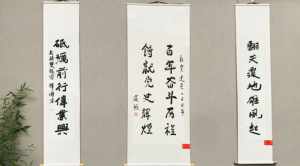 翻天覆地雄風起
百年奋斗历程
铸就党史辉煌
砥礪前行偉業興